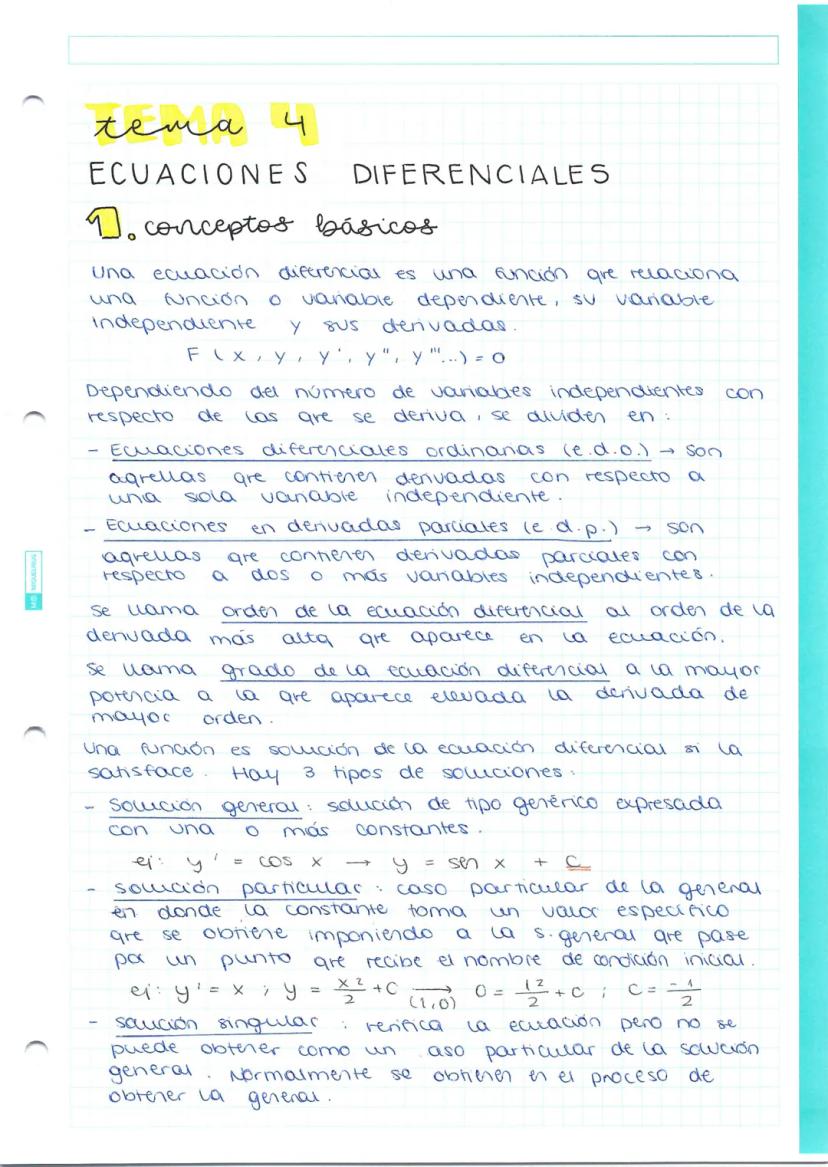 TEMA 4
tema 4
ECUACIONES DIFERENCIALES
1. conceptos básicos
Una ecuación diferencial es una función que relaciona
una función o variable dependiente, su variable
independiente y sus derivadas.
F (x, y, y', y'', y'''...) = 0
Dependiendo del número de variables independientes con
respecto de las que se deriva, se dividen en:
- Ecuaciones diferenciales ordinarias (e.d.o.) → son
aquellas que contienen derivadas con respecto a
una sola variable independiente.
- Ecuaciones en derivadas parciales (e.d.p.) → son
aquellas que contienen derivadas parciales con
respecto a dos o más variables independientes.
Se llama orden de la ecuación diferencial al orden de la
derivada más alta que aparece en la ecuación.
Se llama grado de la ecuación diferencial a la mayor
potencia a la que aparece elevada la derivada de
mayor orden.
Una función es solución de la ecuación diferencial si la
satisface. Hay 3 tipos de soluciones:
- Solución general: solución de tipo genérico expresada
con una o más constantes.
ej: y' = cos x → y = sen x + C
- solución particular: caso particular de la general
en donde la constante toma un valor específico
que se obtiene imponiendo a la s. general que pase
por un punto que recibe el nombre de condición inicial.
ej: y' = x ; y = x²/2 + C → (1,0) 0 = 1²/2 + C ; C = -1/2
- solución singular: verifica la ecuación pero no se
puede obtener como un aso particular de la solución
general. Normalmente se obtienen en el proceso de
obtener la general.
MIQUELRIUS